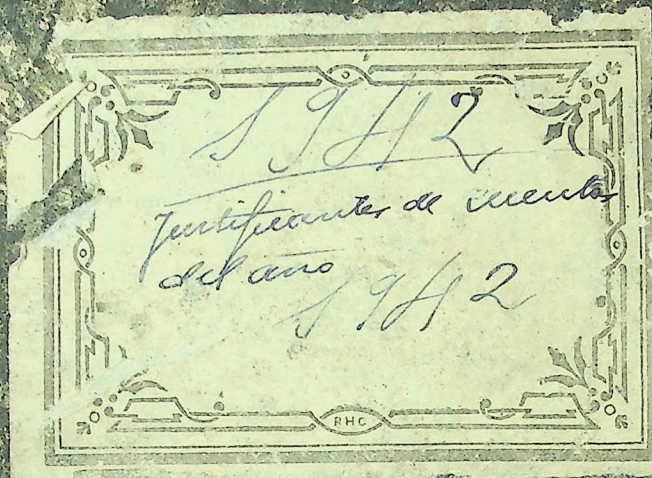 1942
Justificantes de cuentas
del año
1942
RHC